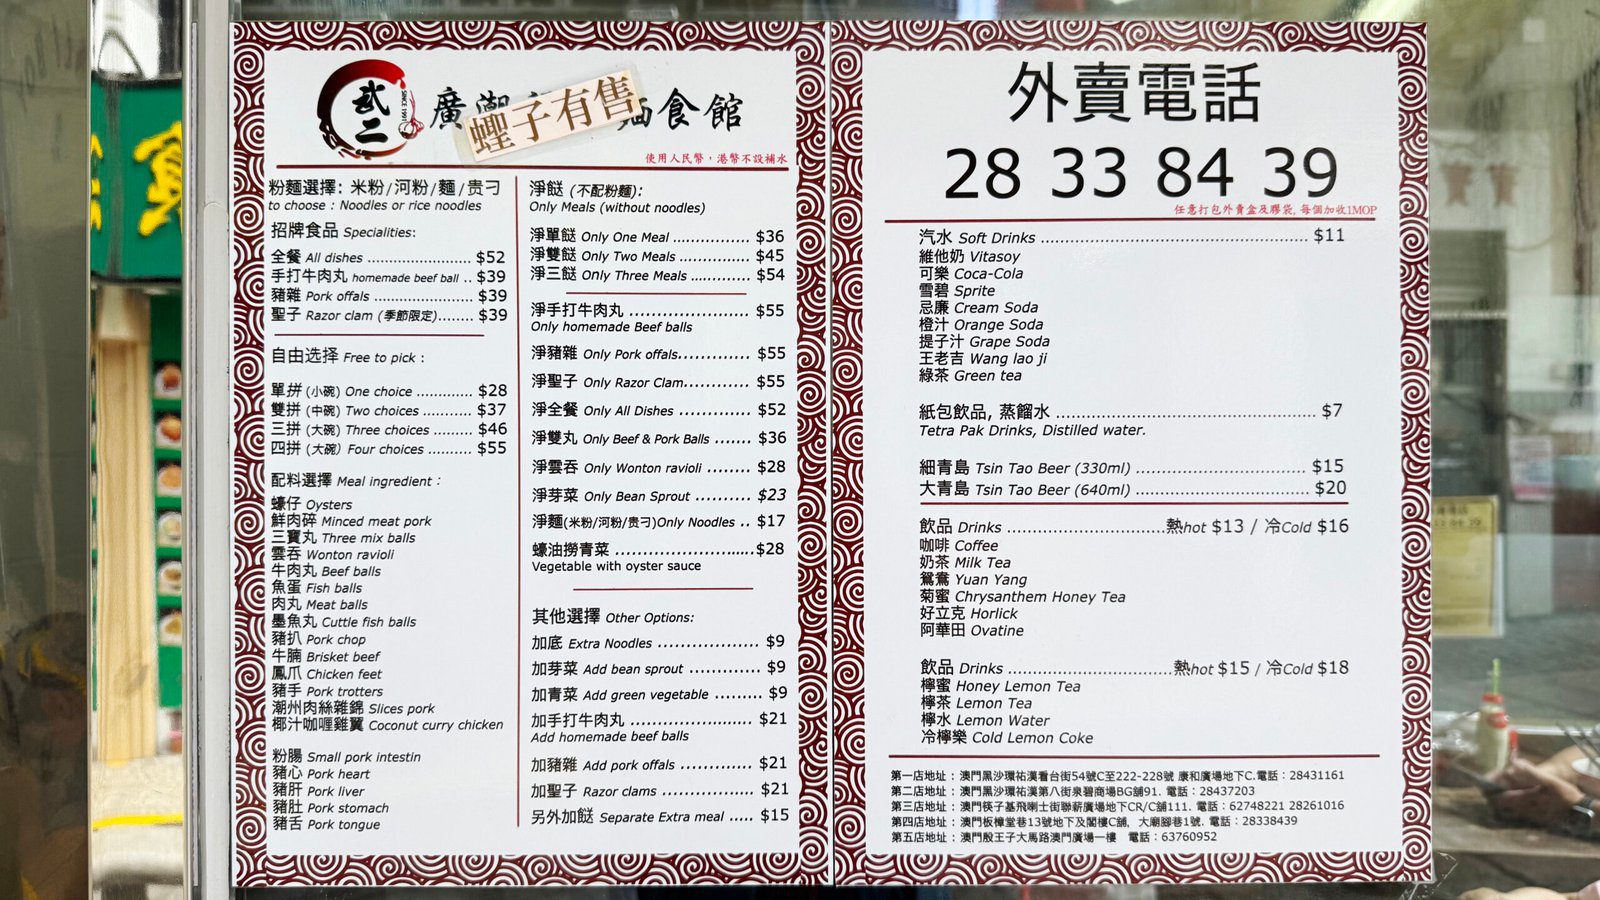 貳二
SINCE 1991
廣潮
麵食館
蟶子有售
使用人民幣，港幣不設補水
粉麵選擇: 米粉/河粉/麵/贵刁
to choose : Noodles or rice noodles
招牌食品 Specialities:
全餐 All dishes ........................ $52
手打牛肉丸 homemade beef ball .. $39
豬雜 Pork offals ...................... $39
聖子 Razor clam (季節限定)........ $39
自由选择 Free to pick :
單拼 (小碗) One choice ............. $28
雙拼 (中碗) Two choices ........... $37
三拼 (大碗) Three choices ......... $46
四拼 (大碗) Four choices .......... $55
配料選擇 Meal ingredient :
蠔仔 Oysters
鮮肉碎 Minced meat pork
三寶丸 Three mix balls
雲吞 Wonton ravioli
牛肉丸 Beef balls
魚蛋 Fish balls
肉丸 Meat balls
墨魚丸 Cuttle fish balls
豬扒 Pork chop
牛腩 Brisket beef
鳳爪 Chicken feet
豬手 Pork trotters
潮州肉絲雜錦 Slices pork
椰汁咖喱雞翼 Coconut curry chicken
粉腸 Small pork intestin
豬心 Pork heart
豬肝 Pork liver
豬肚 Pork stomach
豬舌 Pork tongue
淨餸 (不配粉麵):
Only Meals (without noodles)
淨單餸 Only One Meal ................ $36
淨雙餸 Only Two Meals ............... $45
淨三餸 Only Three Meals ............ $54
淨手打牛肉丸 ........................ $55
Only homemade Beef balls
淨豬雜 Only Pork offals............. $55
淨聖子 Only Razor Clam............ $55
淨全餐 Only All Dishes ............. $52
淨雙丸 Only Beef & Pork Balls ....... $36
淨雲吞 Only Wonton ravioli ........ $28
淨芽菜 Only Bean Sprout .......... $23
淨麵(米粉/河粉/贵刁)Only Noodles .. $17
蠔油撈青菜 ............................$28
Vegetable with oyster sauce
其他選擇 Other Options:
加底 Extra Noodles .................. $9
加芽菜 Add bean sprout ............. $9
加青菜 Add green vegetable ......... $9
加手打牛肉丸 ......................... $21
Add homemade beef balls
加豬雜 Add pork offals .............. $21
加聖子 Razor clams .................. $21
另外加餸 Separate Extra meal ..... $15
外賣電話
28 33 84 39
任意打包外賣盒及膠袋, 每個加收1MOP
汽水 Soft Drinks ................................................ $11
維他奶 Vitasoy
可樂 Coca-Cola
雪碧 Sprite
忌廉 Cream Soda
橙汁 Orange Soda
提子汁 Grape Soda
王老吉 Wang lao ji
綠茶 Green tea
紙包飲品, 蒸餾水 .............................................. $7
Tetra Pak Drinks, Distilled water.
細青島 Tsin Tao Beer (330ml) ............................... $15
大青島 Tsin Tao Beer (640ml) ............................... $20
飲品 Drinks .............................熱hot $13 / 冷Cold $16
咖啡 Coffee
奶茶 Milk Tea
鴛鴦 Yuan Yang
菊蜜 Chrysanthem Honey Tea
好立克 Horlick
阿華田 Ovatine
飲品 Drinks ..............................熱hot $15 / 冷Cold $18
檸蜜 Honey Lemon Tea
檸茶 Lemon Tea
檸水 Lemon Water
冷檸樂 Cold Lemon Coke
第一店地址 : 澳門黑沙環祐漢看台街54號C至222-228號 康和廣場地下C.電話 : 28431161
第二店地址 : 澳門黑沙環祐漢第八街泉碧商場BG舖91. 電話 : 28437203
第三店地址 : 澳門筷子基飛喇士街聯薪廣場地下CR/C舖111. 電話 : 62748221 28261016
第四店地址 : 澳門板樟堂巷13號地下及閣樓C舖, 大廟腳巷1號. 電話 : 28338439
第五店地址 : 澳門殷王子大馬路澳門廣場一樓 電話 : 63760952